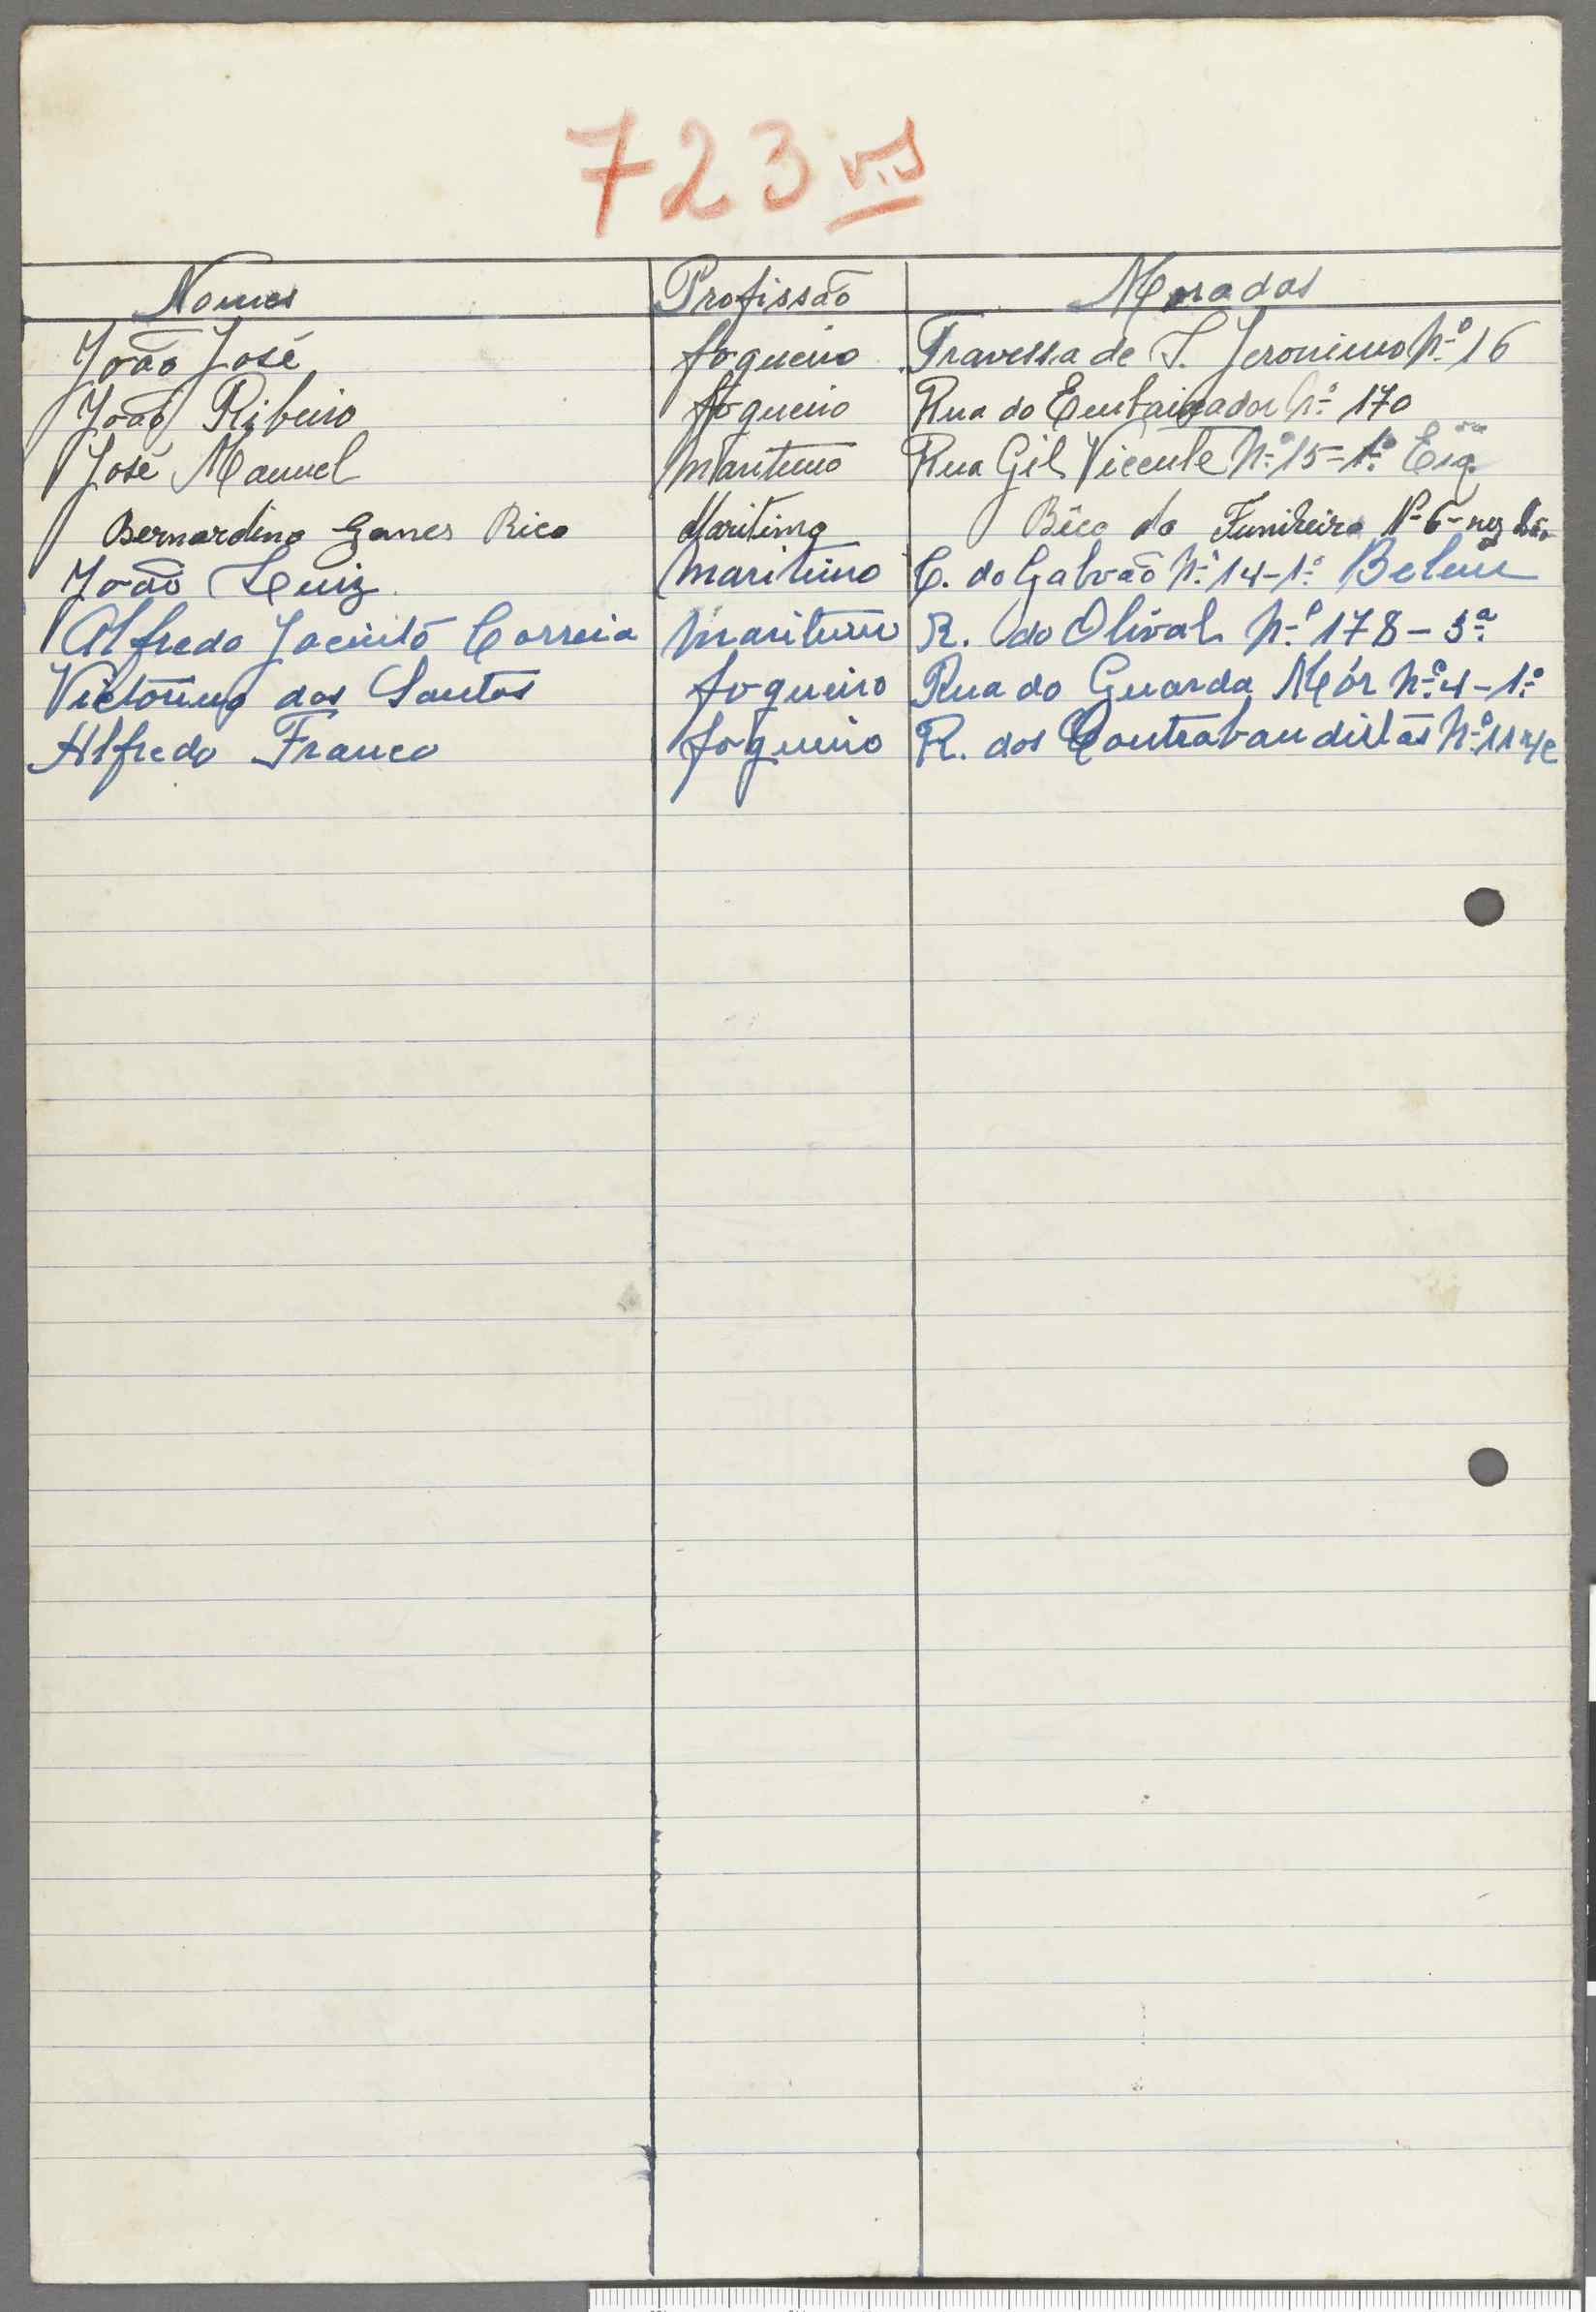 723 v.s
Nomes Profissão Moradas
João José fogueiro Travessa de S. Jeronimo Nº 16
João Ribeiro fogueiro Rua do Embaixador Nº 170
José Manuel Maritimo Rua Gil Vicente Nº 15-1º Esq.
Bernardino Ganes Rico Maritimo Bêco do Funileiro Nº 6-
João Luiz maritimo C. do Galvão Nº 14-1º Belem
Alfredo Jacinto Correia Maritimo R. do Olival Nº 178-3ª
Victorino dos Santos fogueiro Rua do Guarda Mór Nº 4-1º
Alfredo Franco fogueiro R. dos Contrabandistas Nº 11 r/c